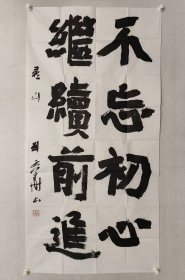 不忘初心
繼續前進